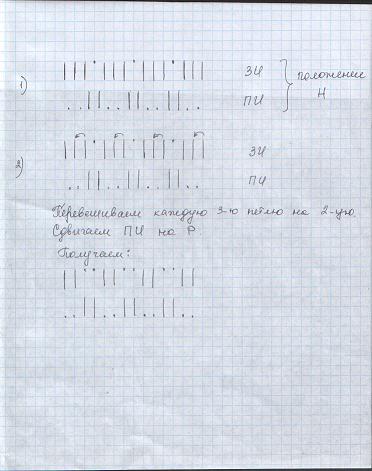 1) ||| · ||| · ||| · ||| ЗИ
. . || . . || . . || . . ПИ
положение Н
2) ||| · ||| · ||| · ||| ЗИ
. . || . . || . . || . . ПИ
Перевешиваем каждую 3-ю петлю на 2-ую.
Сдвигаем ПИ на Р.
Получаем:
|| · · || · · || · · ||
. . || . . || . . || . .